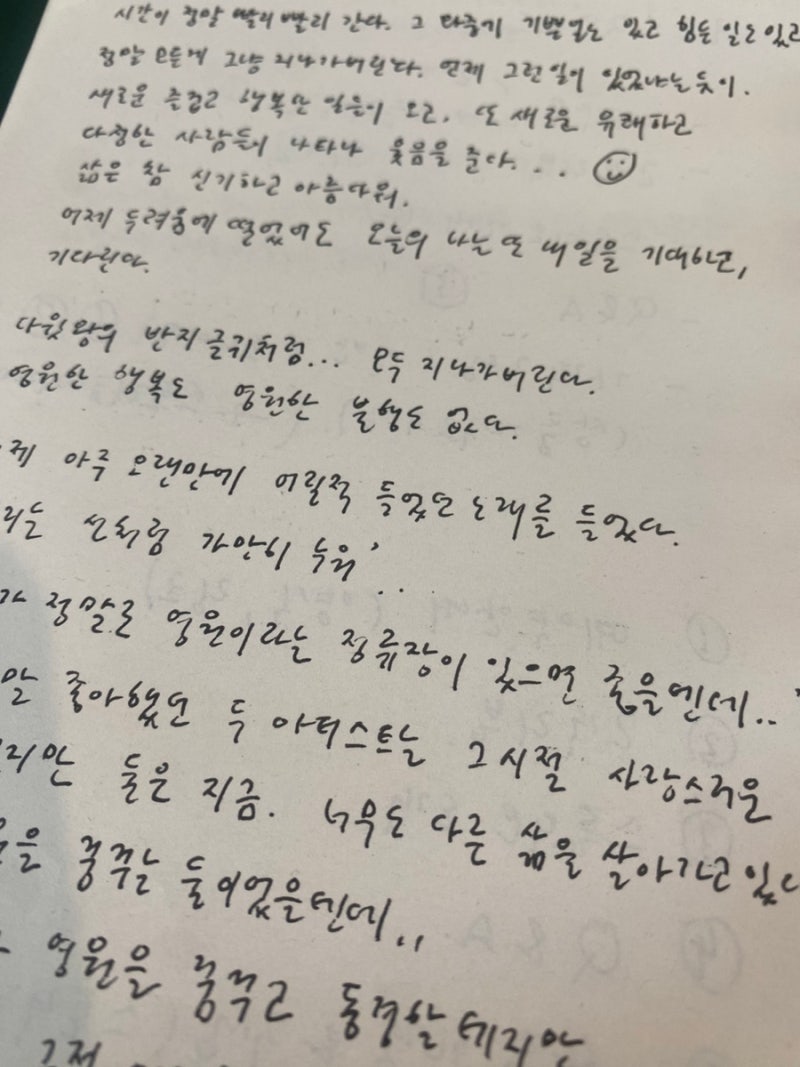 시간이 정말 빨리 빨리 간다. 그 와중에 기쁠일도 있고 힘든 일도 있고
정말 모든게 그냥 지나가버린다. 언제 그런일이 있었냐는 듯이.
새로운 즐겁고 행복한 일들이 오고, 또 새로운 유쾌하고
다정한 사람들이 나타나 웃음을 준다. . .
삶은 참 신기하고 아름다워.
어제 두려움에 떨었어도 오늘의 나는 또 내일을 기대하고,
기다린다.
다윗왕의 반지글귀처럼... 모두 지나가버린다.
영원한 행복도 영원한 불행도 없다.
제 아주 오랜만에 어릴적 들었던 노래를 들었다.
리는 선처럼 가만히 누워'
가 정말로 영원이라는 정류장이 있으면 좋을텐데..
말 좋아했던 두 아티스트는 그시절 사랑스러운
지만 둘은 지금. 너무도 다른 삶을 살아가고 있다
을 꿈꾸는 둘이었을텐데..
영원을 꿈꾸고 동경할테지만